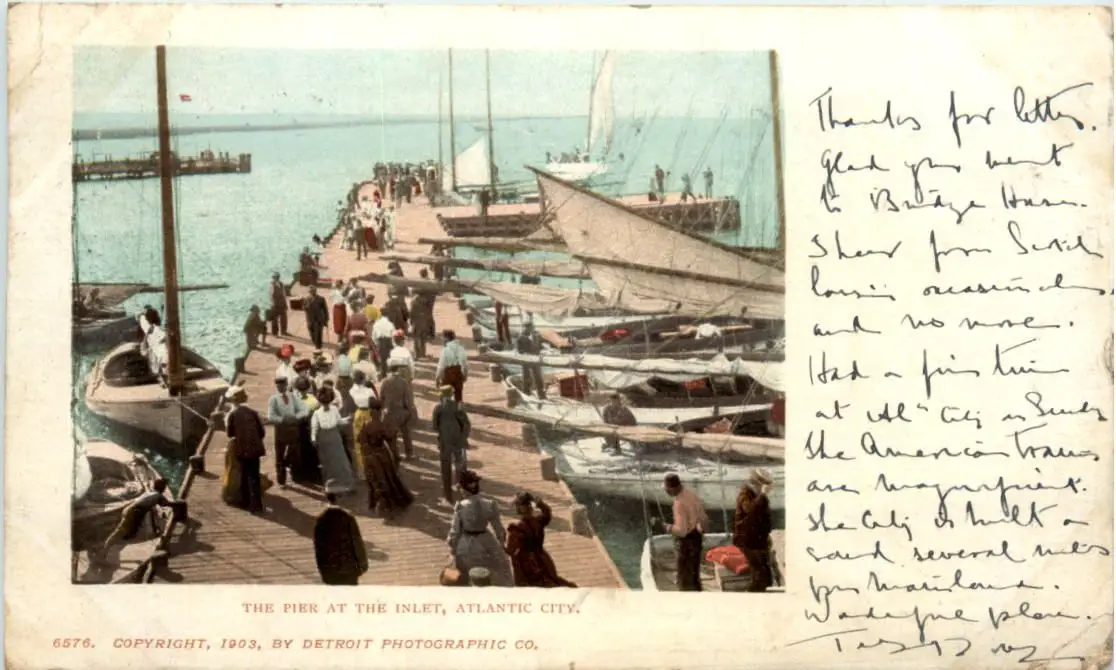 THE PIER AT THE INLET, ATLANTIC CITY.
6576. COPYRIGHT, 1903, BY DETROIT PHOTOGRAPHIC CO.
Thanks for letter.
Glad you went
to Bridge House.
I hear from Scotch
occasionally
and no more.
Had a fine time
at Atl City on Sunday
The American Trains
are magnificent.
The City is built on
sand several miles
from Mainland.
Wonderful place.